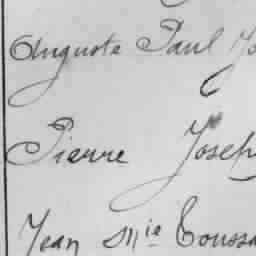 Auguste Paul Jo
Pierre Joseph
Jean Mie Toussa